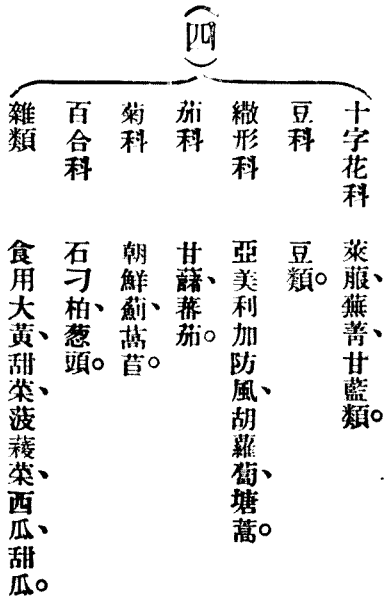 （四）
十字花科　萊服、蕪菁、甘藍類。
豆科　豆類。
繖形科　亞美利加防風、胡蘿蔔、塘蒿。
茄科　甘藷、蕃茄。
菊科　朝鮮薊、萵苣。
百合科　石刁柏、葱頭。
雜類　食用大黃、甜菜、菠薐菜、西瓜、甜瓜。